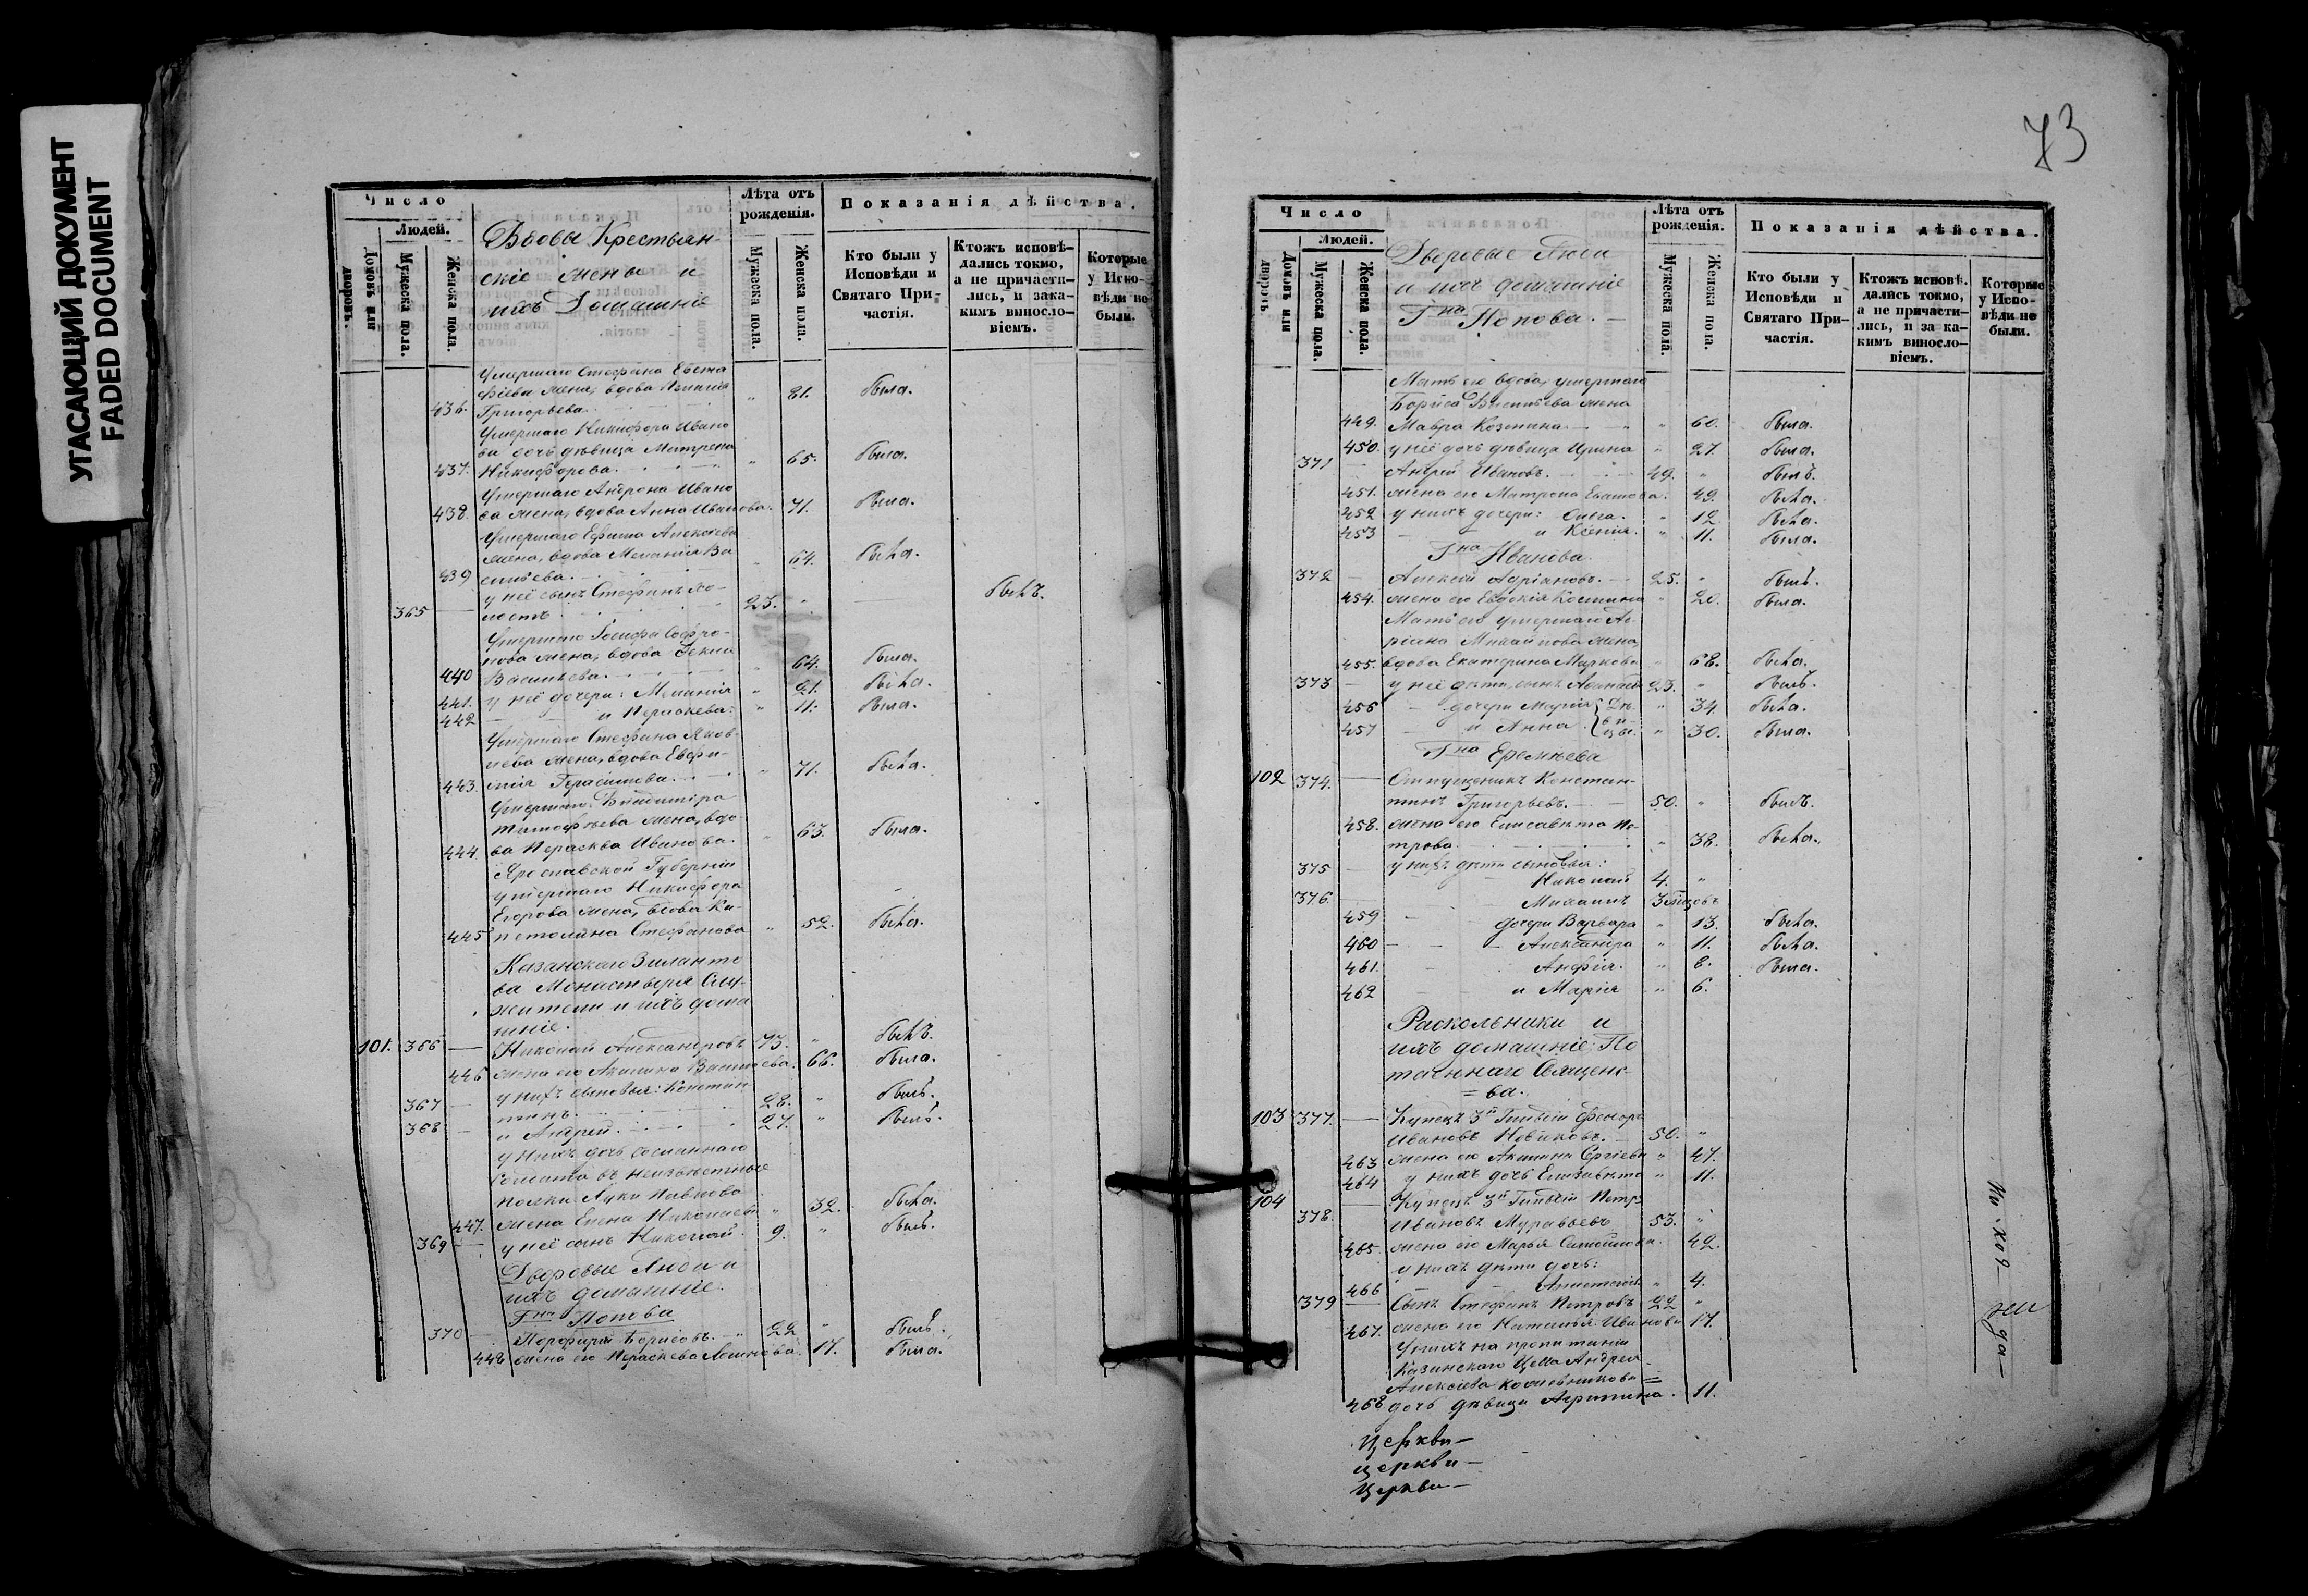 УГАСАЮЩИЙ ДОКУМЕНТ
FADED DOCUMENT
Число
Людей.
Домовъ или дворовъ.
Мужеска пола.
Женска пола.
Вдовы Крестьян-
скіе жены и
ихъ Домашніе
Лѣта отъ рожденія.
Мужеска пола.
Женска пола.
Показанія дѣйства.
Кто были у Исповѣди и Святаго При-частія.
Ктожъ исповѣ-дались токмо, а не причасти-лись, и зака-кимъ винос ло-віемъ.
Которые у Испо-вѣди не были.
Умершаго Стефана Евста
фіева жена, вдова
436. Григорьева. " 81. была.
Умершаго Никифора Ивано
ва дочь дѣвица Матрена
437. Никифорова. " 65. была.
Умершаго Андрона Ивано
438. ва жена, вдова Анна Иванова. 71. была.
Умершаго Ефима Алексѣева
жена, вдова Меланія Ва
439 сильева. " 64. была.
у неё сынъ Стефанъ хо-
365 — лостъ 23. " былъ.
Умершаго Іосифа Софро-
нова жена, вдова Фекла
440 Васильева. " 64. была.
441. у неё дочери: Меланія " 21. была.
442 и Параскева. " 11. была.
Умершаго Стефана Яков-
лева жена, вдова Евфи-
443. мія Герасимова. " 71. была.
Умершаго Владиміра
Тимофѣева жена, вдо-
444. ва Парасква Иванова. " 63. была.
Ярославской Губерніи
умершаго Никифора
Егорова жена, вдова Ка-
445 питолина Стефанова " 52. была.
Казанскаго Зиланто
ва Монастыря Слу-
жители и ихъ дома
шніе.
101. 366 — Николай Александровъ 73. " былъ.
446 жена его Акилина Васильева. 66. была.
у нихъ сыновья: Констан
367 — тинъ. 28. " былъ.
368 — и Андрей. 27. " былъ.
у нихъ дочь сосланнаго
солдата въ неизвѣстные
полки Луки Павлова
447. жена Елена Николаева " 32. была.
369 — у неё сынъ Николай. 9. " былъ.
Дворовые Люди и
ихъ домашніе.
Гна Попова
370 — Порфирій Борисовъ. 22 " былъ.
448 жена его Параскева Логинова. 17. была.
73
Число
Людей.
Домовъ или дворовъ.
Мужеска пола.
Женска пола.
Дворовые Люди
и ихъ домашніе
Гна Попова. —
Лѣта отъ рожденія.
Мужеска пола.
Женска пола.
Показанія дѣйства.
Кто были у Исповѣди и Святаго При-частія.
Ктожъ исповѣ.дались токмо, а не причасти-лись, и за ка-кимъ винос ло-віемъ.
Которые у Испо-вѣди не были.
Мать его вдова, умершаго
Бориса Васильева жена
449. Мавра Козмина. " 60. была.
450. у неё дочь дѣвица Ирина " 27. была.
371 — Андрей Ивановъ. 49. " былъ.
451. жена его Матрона 49. была.
452 у нихъ дочери: Ольга. " 12. была.
453 и Ксенія. " 11. была.
Гна Иванова.
372 — Алексѣй Адріановъ. 25. " былъ.
454. жена его Евдокія " 20. была.
Мать его умершаго Ад-
ріана Михайлова жена,
455. вдова Екатерина Маркова " 68. была.
373 — у неё дѣти, сынъ Аѳанасій 23. " былъ.
456 дочери Марія { Дѣ- " 34. была.
457 и Анна { вицы. " 30. была.
Гна Еремѣева
102 374. — Отпущеникъ Констан-
тинъ Григорьевъ. 50. " былъ.
458. жена его Елисавѣта Пе-
трова. " 38. была.
375 — у нихъ дѣти сыновья:
Николай 4. "
376. — Михаилъ 3 мѣсяцовъ
459 дочери Варвара " 13. была.
460 Александра " 11. была.
461. Анфія. " 8. была.
462 и Марія " 6.
Раскольники и
ихъ домашніе По
таеннаго Священс-
= ва.
103 377. — Купецъ 3й Гильдіи Феодоръ
Ивановъ Новиковъ. 50. "
463 жена его Акилина Сергіева " 47.
464 у нихъ дочь Елизавѣта " 11.
104 — Купецъ 3й Гильдіи Петръ
378. Ивановъ Муравьевъ. 53. "
465. жена его Марья 42.
у нихъ дѣти дочь:
466 Анастасія " 4.
379 — Сынъ Стефанъ Петровъ 22 "
467. жена его Наталья Иванова 17.
У нихъ на пропитаніи
Казанскаго Цеха Андрея
Алексѣева Кожевникова =
468 дочь дѣвица Агрипина. 11.
Церкви —
церкви —
Церкви —
Ни-ког-
да-